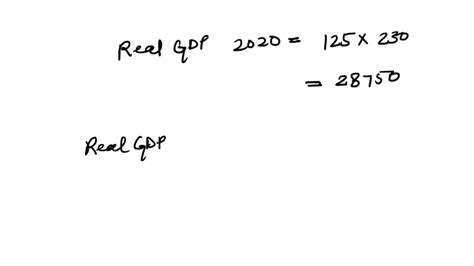 Real GDP 2020 = 125 × 230
= 28750
Real GDP